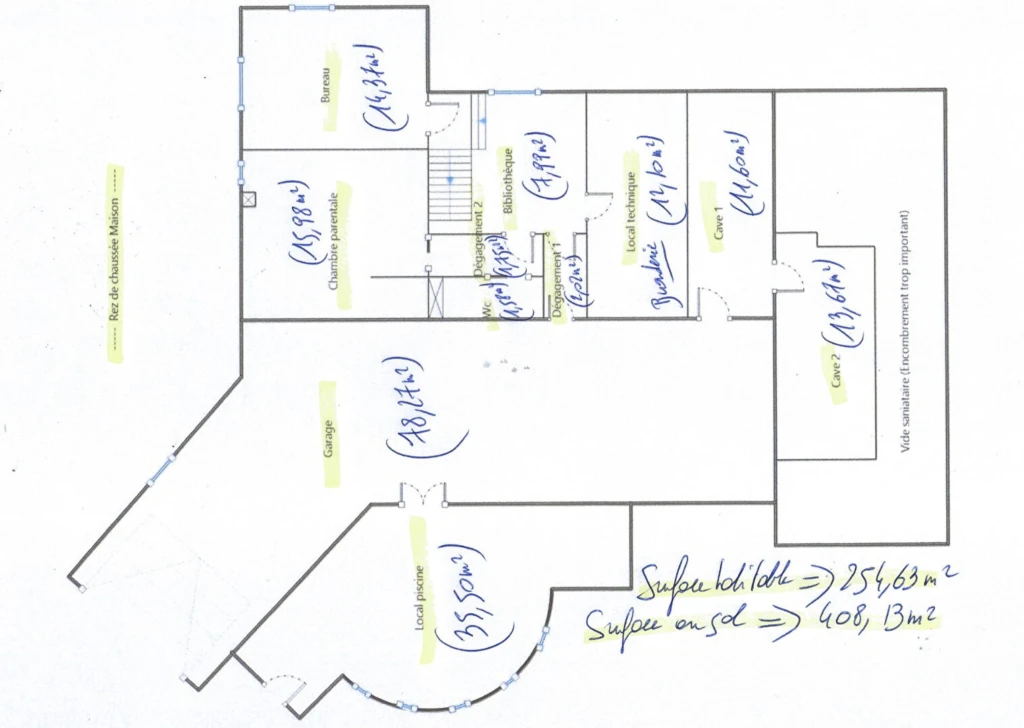 ----- Rez de chaussée Maison -----
Bureau
(14,37m²)
Chambre parentale
(15,98m²)
Dégagement 2
(1,75m²)
Bibliothèque
(7,99m²)
Wc
(1,58m²)
Dégagement 1
(2,02m²)
Local technique
Buanderie (12,10m²)
Cave 1
(11,60m²)
Cave 2
(13,67m²)
Vide saniataire (Encombrement trop important)
Garage
(78,27m²)
Local piscine
(35,50m²)
Surface habitable => 254,63m²
Surface au sol => 408,13m²